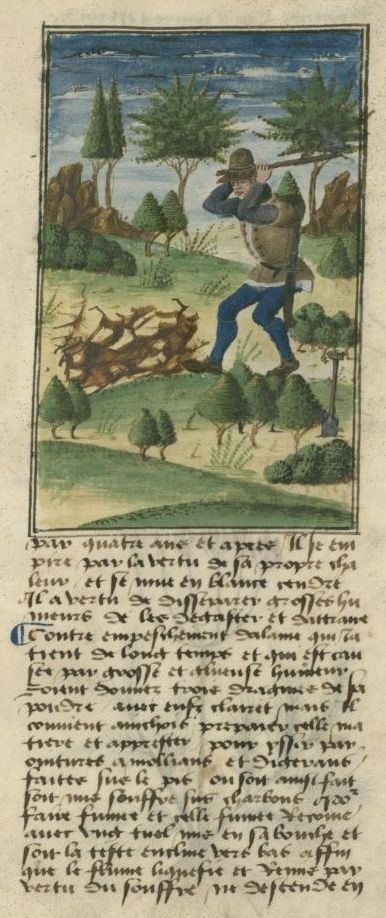 par quatre ans et apres / Il se em
pire par la vertu de sa propre cha
leur / et se mue en blance cendre
Il a vertu de disseparer grosses hu
meurs de les degaster et dattraire
Contre empeschement dalaine qui
tient de long temps et qui est cau
see par grosse et glueuse humeur
soient donnez trois dragmes de sa
pouldre / avec enfz clairet / mais Il
convient ainchois preparer celle ma
tiere et apprester / pour yssir par
ointures amollians et digerans
faites sus le pis / ou soit ainsi fait
soit mis souffre sus charbons
faire fumee et celle fumee recoive
avec ung tuel mis en sa bouche et
soit la teste encline vers bas affin
que le flume liquefie et remis par
vertu du souffre / ne descende en